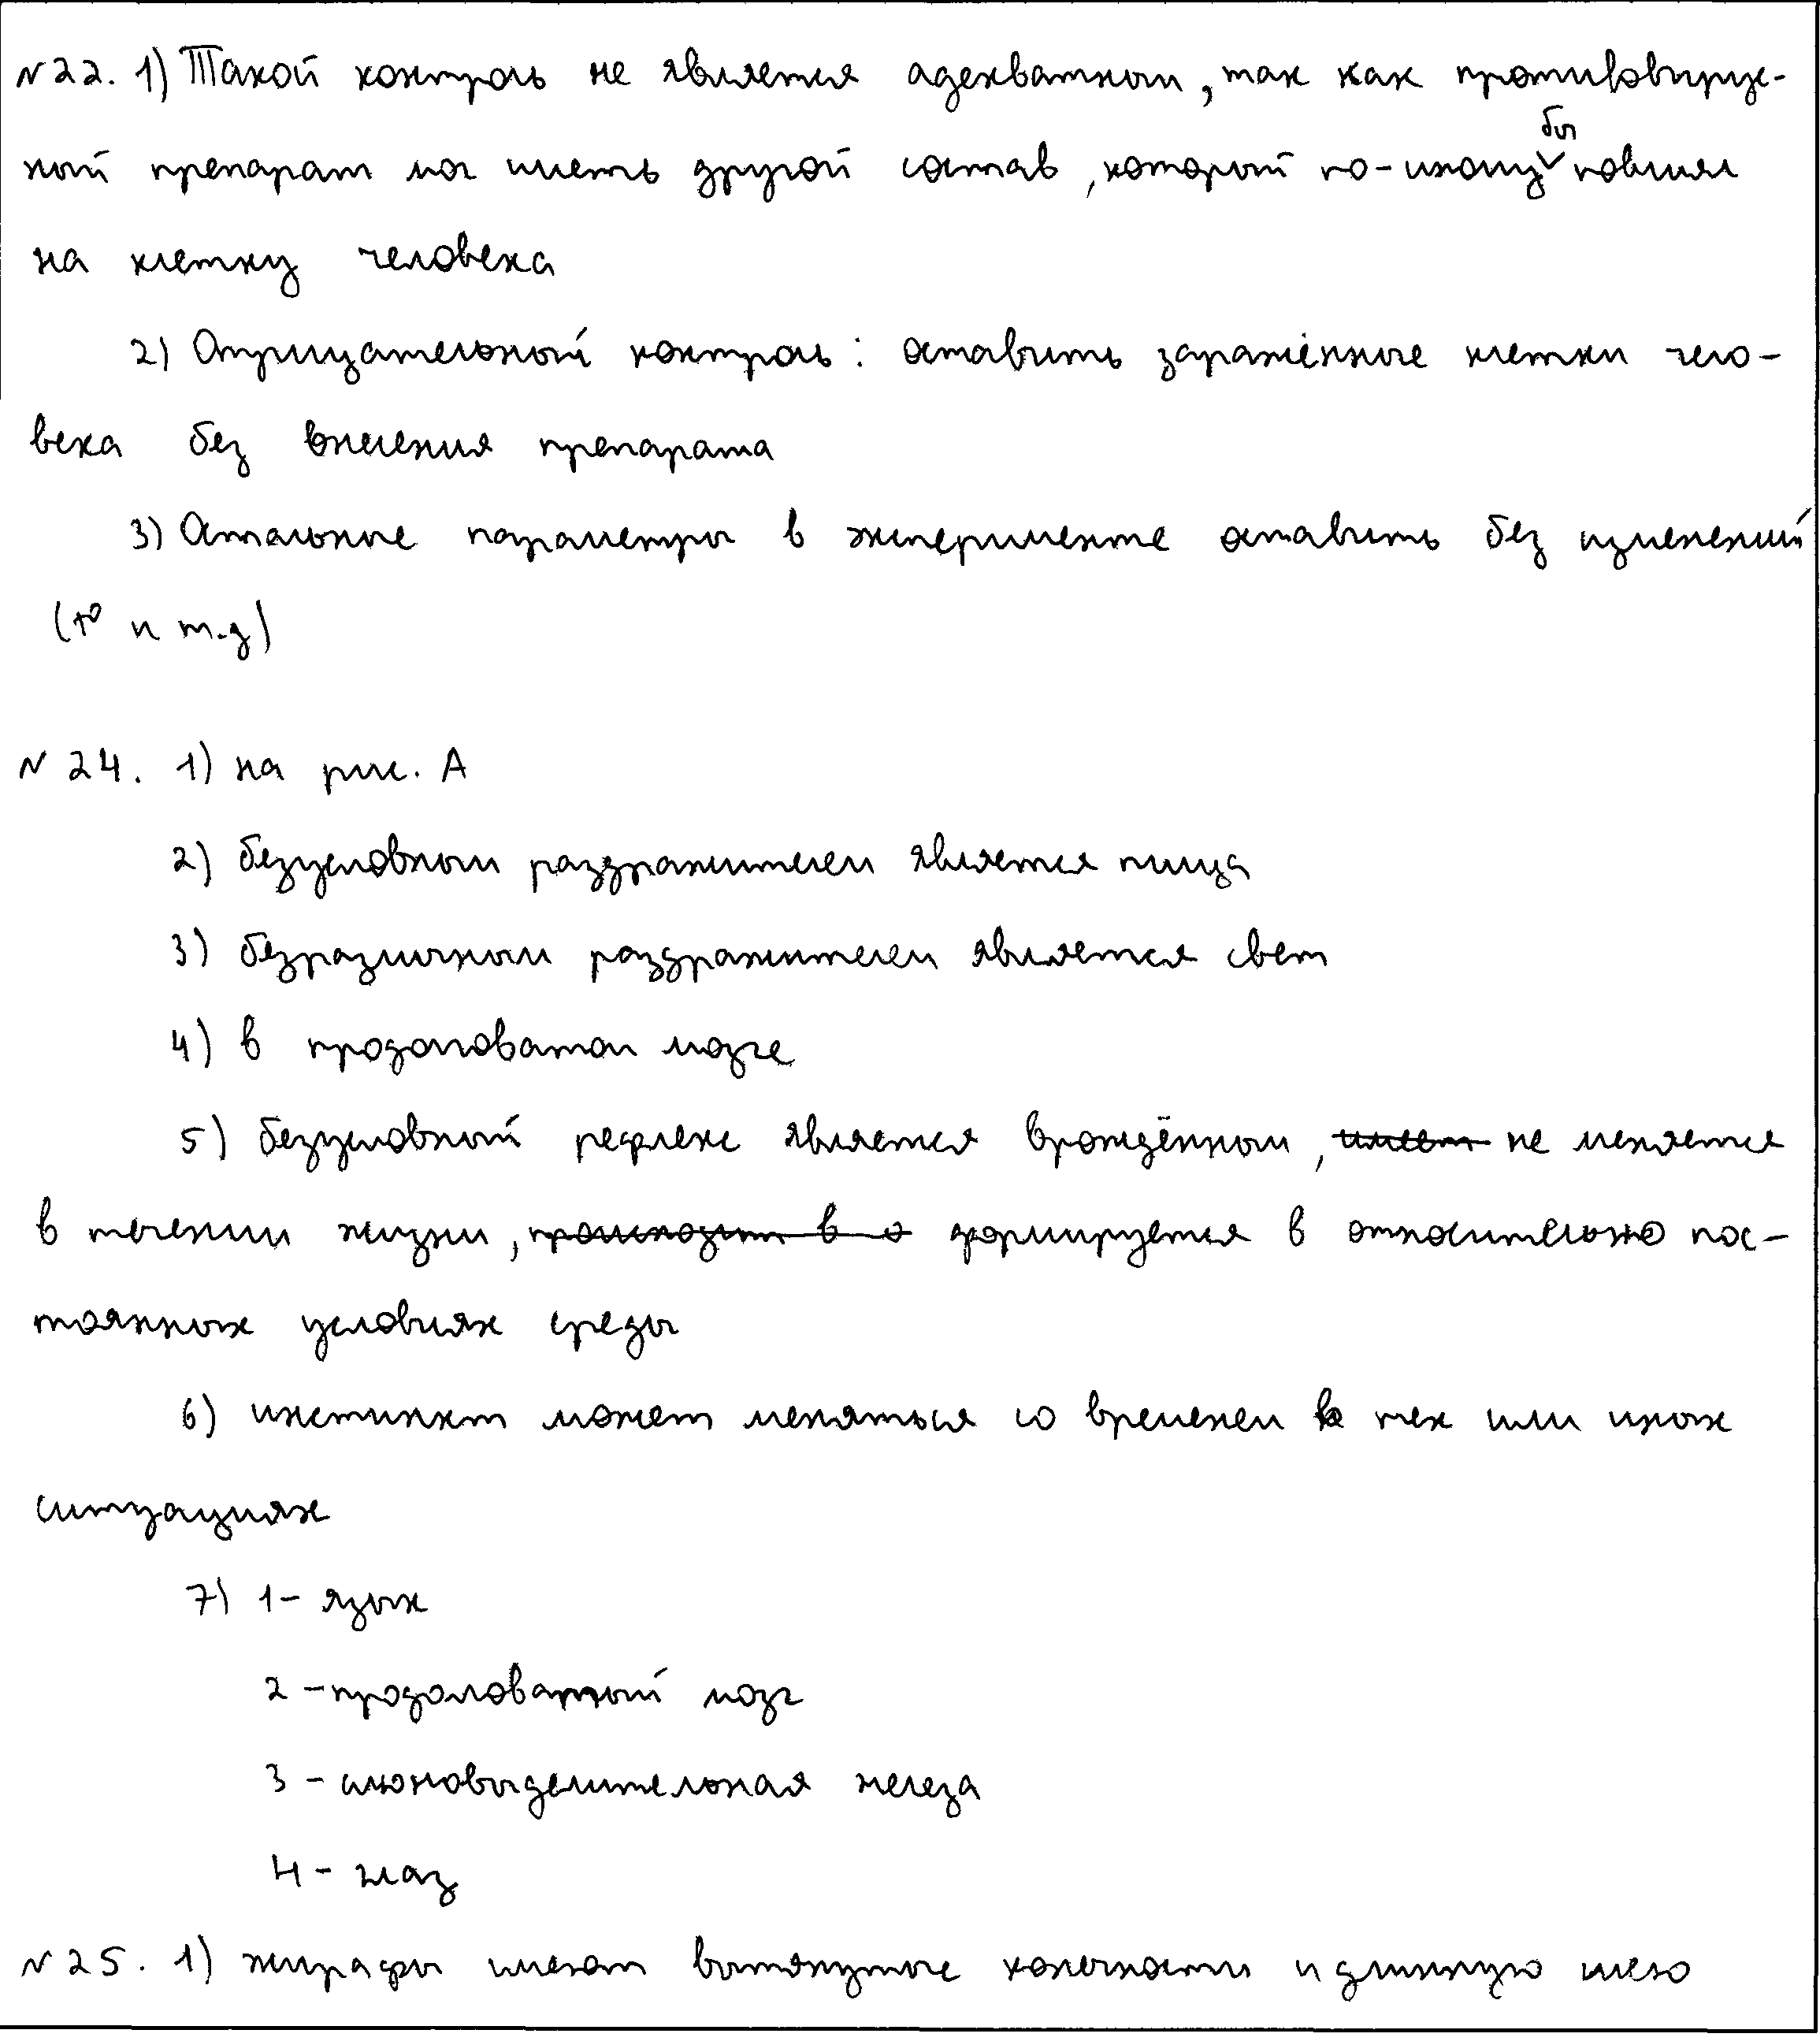 №22. 1) Такой контроль не является адекватным, так как противовирус-
ный препарат мог иметь другой состав, который по-иному бы повлиял
на клетку человека
2) Отрицательный контроль: оставить заражённые клетки чело-
века без внесения препарата
3) Остальные параметры в эксперименте оставить без изменений
(t° и т.д)
№ 24. 1) на рис. А
2) безусловным раздражителем является пища
3) безразличным раздражителем является свет
4) в продолговатом мозге
5) безусловный рефлекс является врождённым, имеет не меняется
в течении жизни, происходит в о формируется в относительно пос-
тоянных условиях среды
6) инстинкт может меняться со временем в тех или иных
ситуациях
7) 1- язык
2 - продолговатый мозг
3 - слюновыделительная железа
4 - глаз
№ 25. 1) жирафы имеют вытянутые конечности и длинную шею